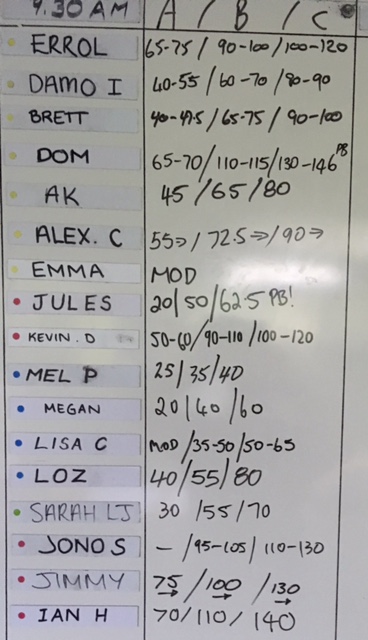 9.30 AM A / B / C
ERROL 65-75 / 90-100 / 100-120
DAMO I 40-55 / 60-70 / 80-90
BRETT 40-47.5 / 65-75 / 90-100
DOM 65-70 / 110-115 / 130-146 PB
AK 45 / 65 / 80
ALEX. C 55→ / 72.5→ / 90→
EMMA MOD
JULES 20 / 50 / 62.5 PB!
KEVIN. D 50-60 / 90-110 / 100-120
MEL P 25 / 35 / 40
MEGAN 20 / 40 / 60
LISA C MOD / 35-50 / 50-65
LOZ 40 / 55 / 80
SARAH LJ 30 / 55 / 70
JONO S - / 95-105 / 110-130
JIMMY 75→ / 100→ / 130→
IAN H 70 / 110 / 140